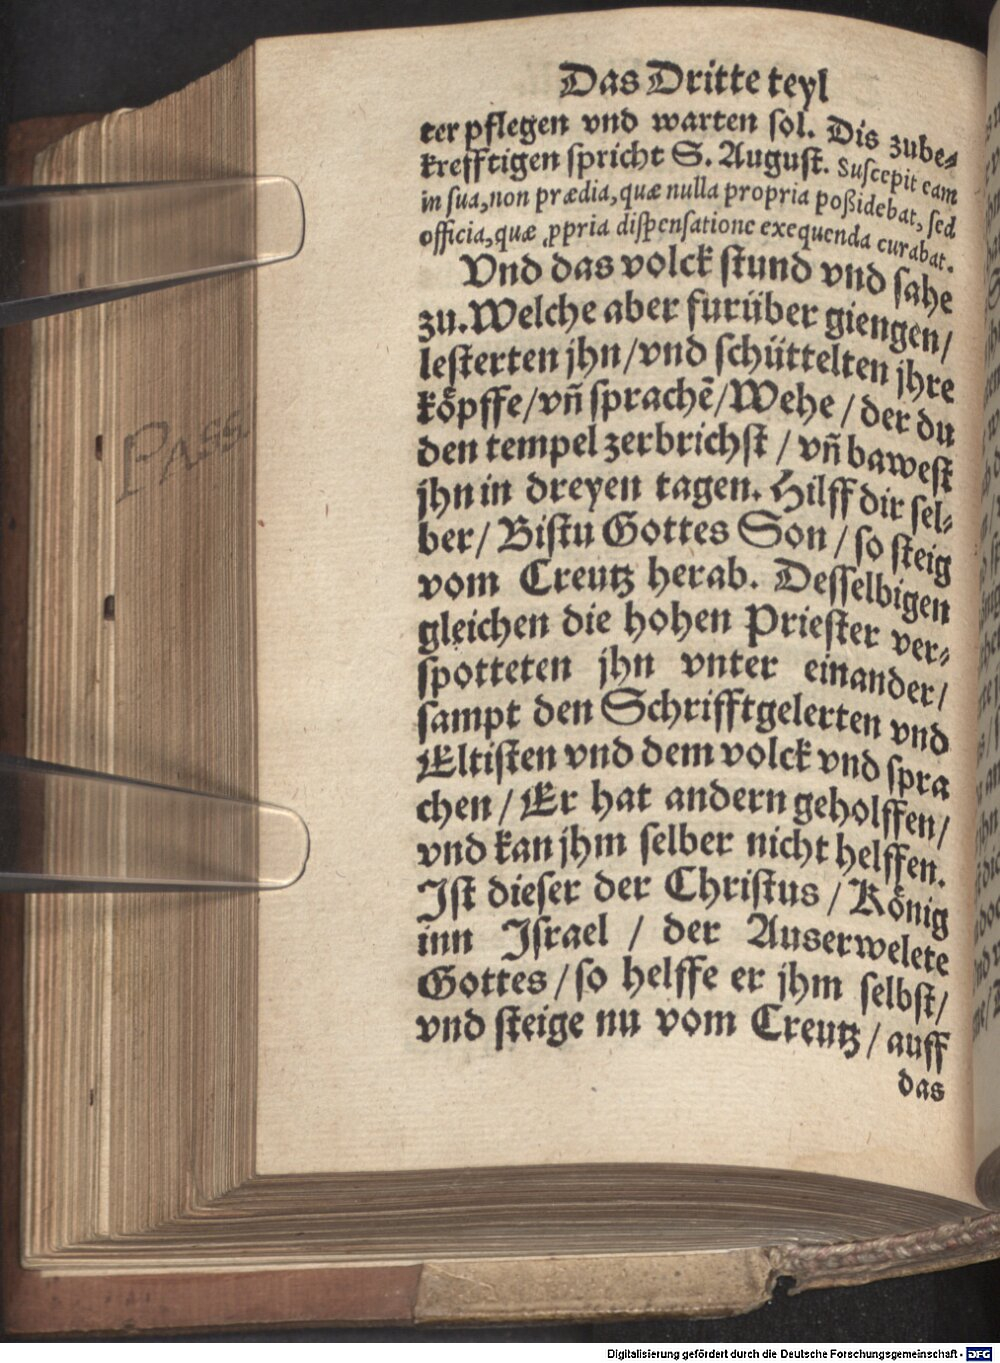 Das Dritte teyl
ter pflegen vnd warten sol. Dis zube-
krefftigen spricht S. August. Suscepit eam
in sua, non prædia, quæ nulla propria poßidebat, sed
officia, quæ ꝓpria dispensatione exequenda curabat.
Vnd das volck stund vnd sahe
zu. Welche aber furüber giengen/
lesterten jhn/vnd schüttelten jhre
köpffe/vñ sprachē/Wehe/der du
den tempel zerbrichst/vñ bawest
jhn in dreyen tagen. Hilff dir sel-
ber/Bistu Gottes Son/so steig
vom Creutz herab. Desselbigen
gleichen die hohen Priester ver-
spotteten jhn vnter einander/
sampt den Schrifftgelerten vnd
Eltisten vnd dem volck vnd spra
chen/Er hat andern geholffen/
vnd kan jhm selber nicht helffen.
Ist dieser der Christus/König
inn Israel/der Auserwelete
Gottes/so helffe er jhm selbst/
vnd steige nu vom Creutz/auff
das
PASS.
Digitalisierung gefördert durch die Deutsche Forschungsgemeinschaft - DFG